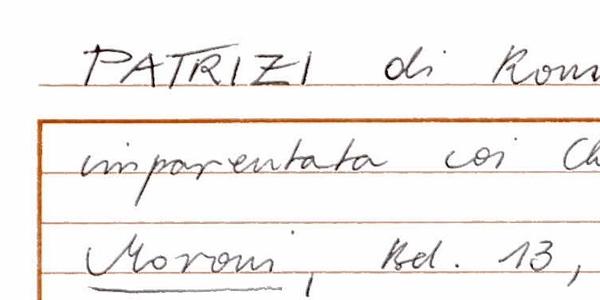 PATRIZI di Rom
imparentata coi Ch
Moroni, Bd. 13,